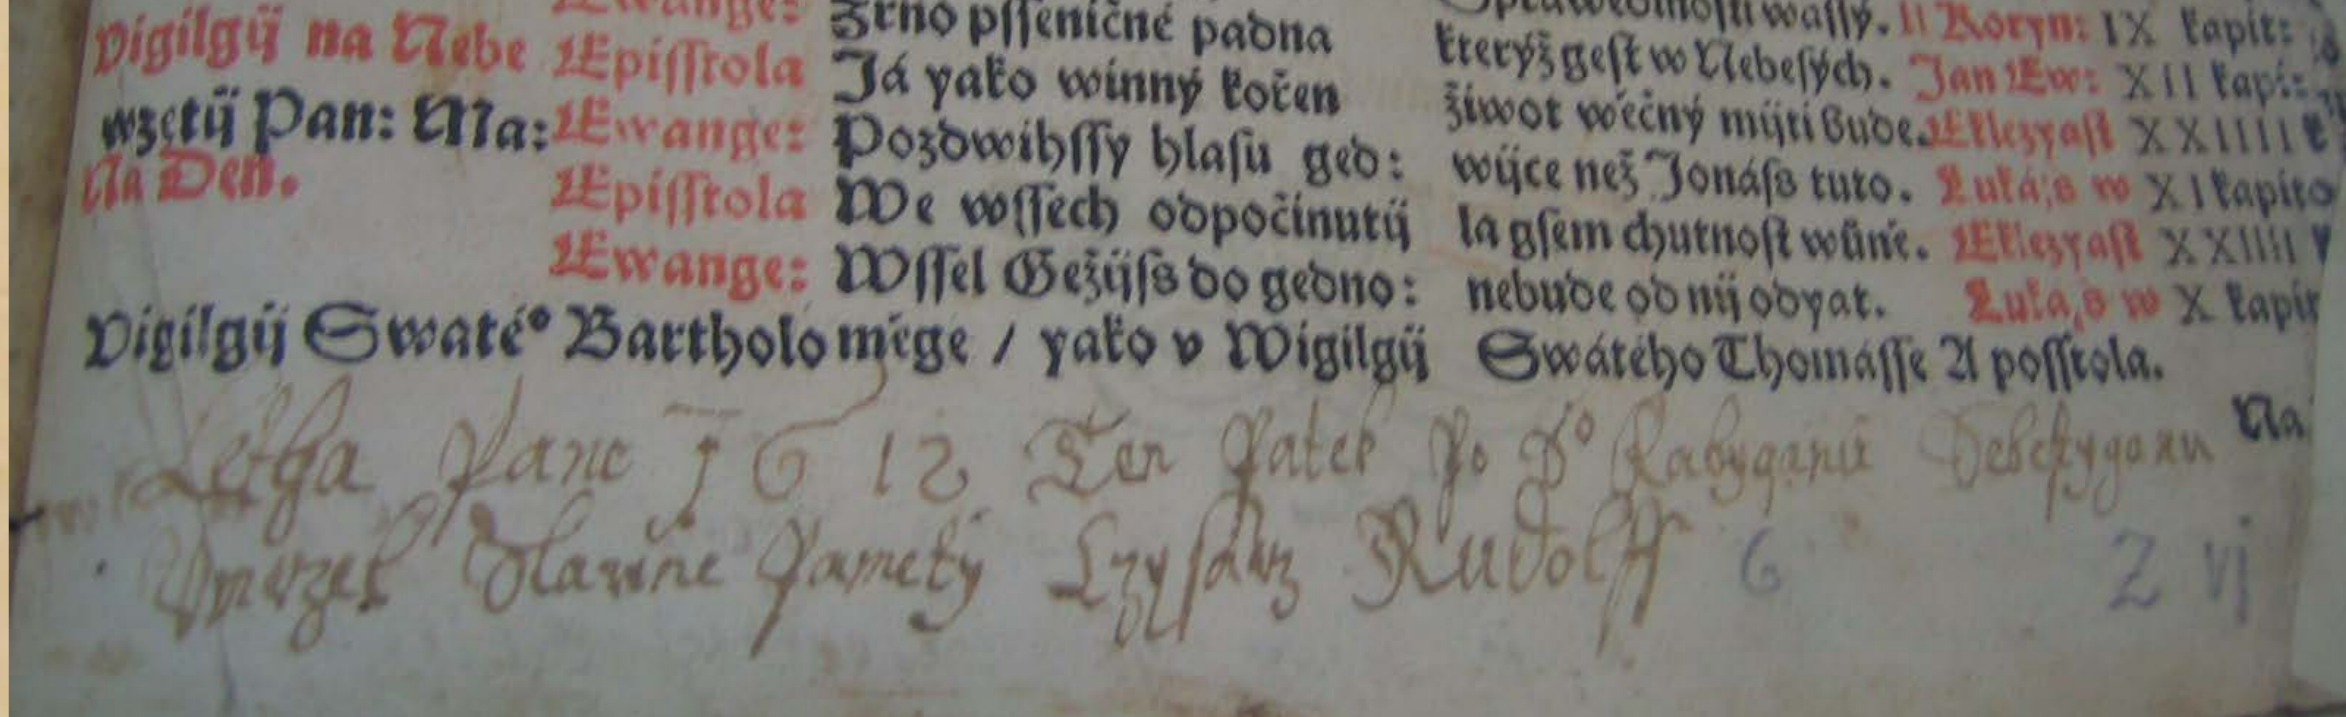 Ewange: Zrno psseničné padna Sprawedlnosti wassý. II Koryn: IX kapit:
Vigilgij na Nebe Episstola Já yako winný kořen kterýž gest w Nebesých. Jan Ew: XII kapi:
wzetij Pan: Ma: Ewange: Pozdwihssy hlasu ged: žiwot wěčný mijti bude. Eklezyast XXIIII k
Na Den. Episstola We wssech odpočinutij wijce než Jonáss tuto. Lukáss w XI kapito
Ewange: Wssel Gežijss do gedno: la gsem chutnost wůně. Eklezyast XXIIII
nebude od nij odyat. Lukass w X kapit
Vigilgij Swaté° Bartholoměge / yako v Wigilgij Swátého Thomásse Aposstola.
Na
Letha Pane 1612 Ten Patek Po S° Fabyganu Sebestyganu
Vmrzel Slawne Pamety Czysarz Rudolff 6 Z vj